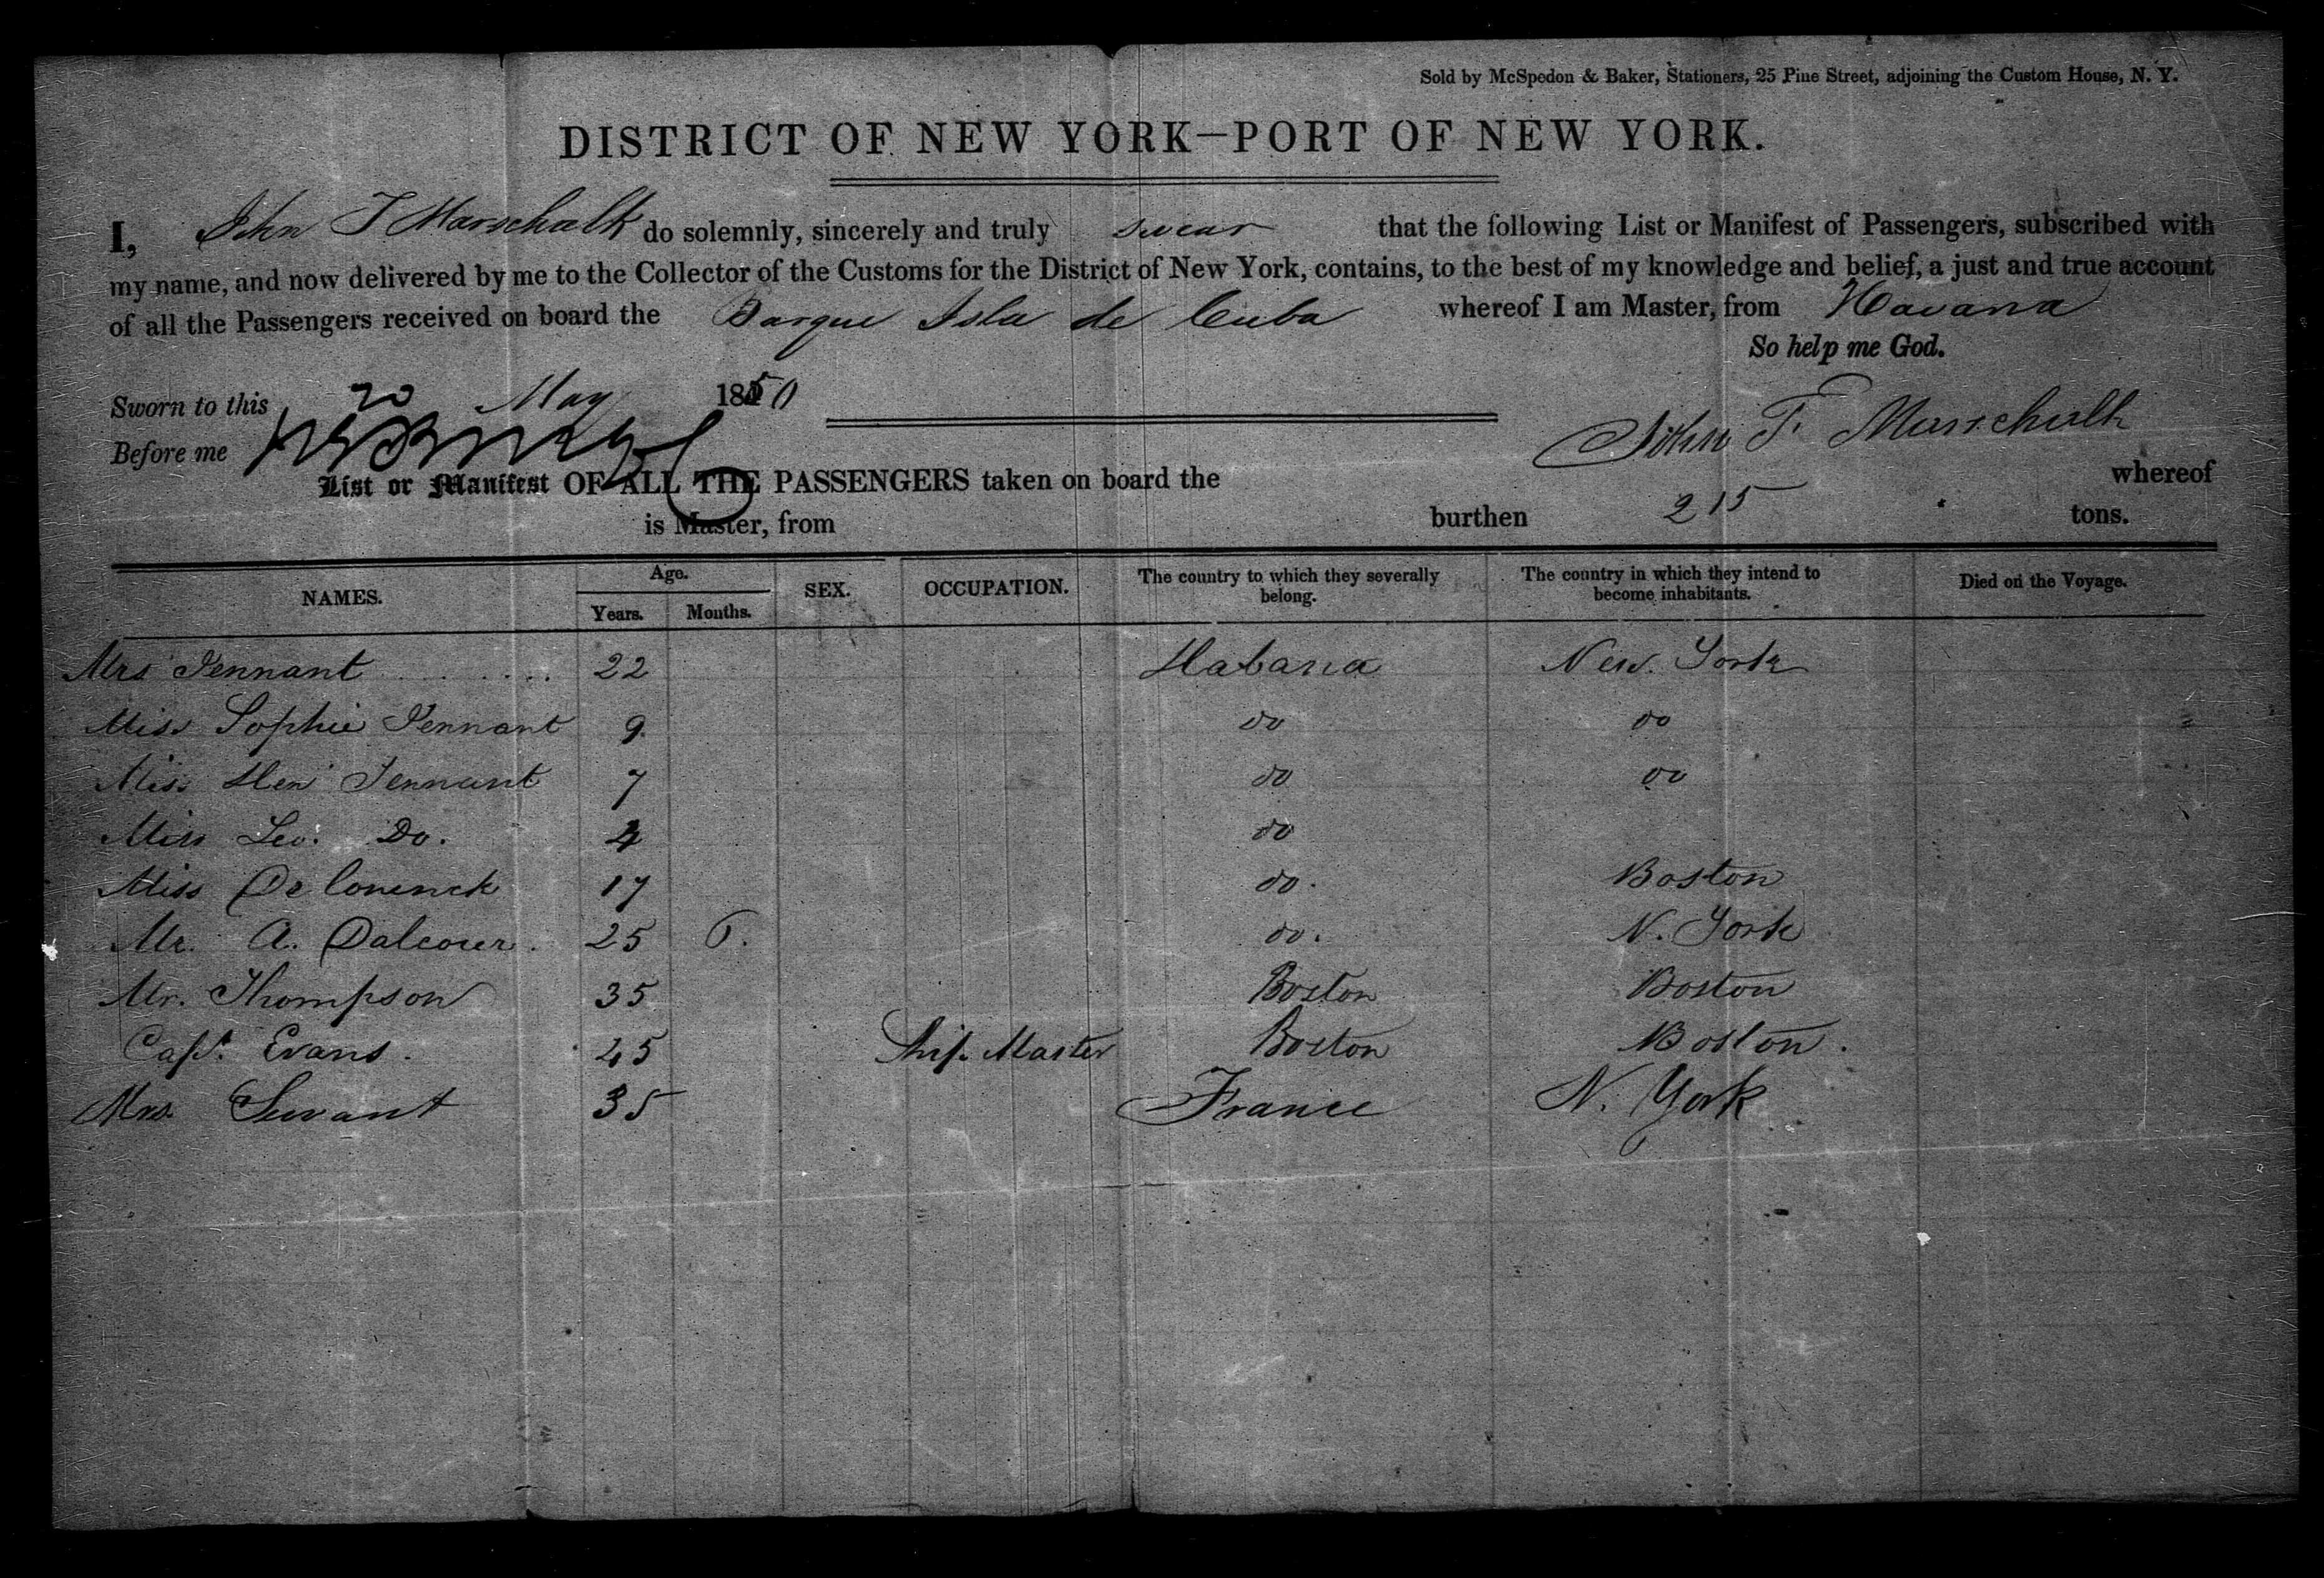 Sold by McSpedon & Baker, Stationers, 25 Pine Street, adjoining the Custom House, N. Y.
DISTRICT OF NEW YORK—PORT OF NEW YORK.
I, John F Marschalk do solemnly, sincerely and truly swear that the following List or Manifest of Passengers, subscribed with
my name, and now delivered by me to the Collector of the Customs for the District of New York, contains, to the best of my knowledge and belief, a just and true account
of all the Passengers received on board the Barque Isla de Cuba whereof I am Master, from Havana
So help me God.
Sworn to this 20 May 1850
Before me
John F. Marschalk
List or Manifest OF ALL THE PASSENGERS taken on board the whereof
is Master, from burthen 215 tons.
NAMES. Age. Years. Months. SEX. OCCUPATION. The country to which they severally belong. The country in which they intend to become inhabitants. Died on the Voyage.
Mrs Tennant 22 Habana New. York
Miss Sophie Tennant 9 do do
Miss Hen Tennant 7 do do
Miss Leo. Do. 4 do
Miss 17 do. Boston
Mr. A. 25 6. do. N. York
Mr. Thompson 35 Boston Boston
Capt. Evans. 45 Ship Master Boston Boston.
Mrs. 35 France N. York